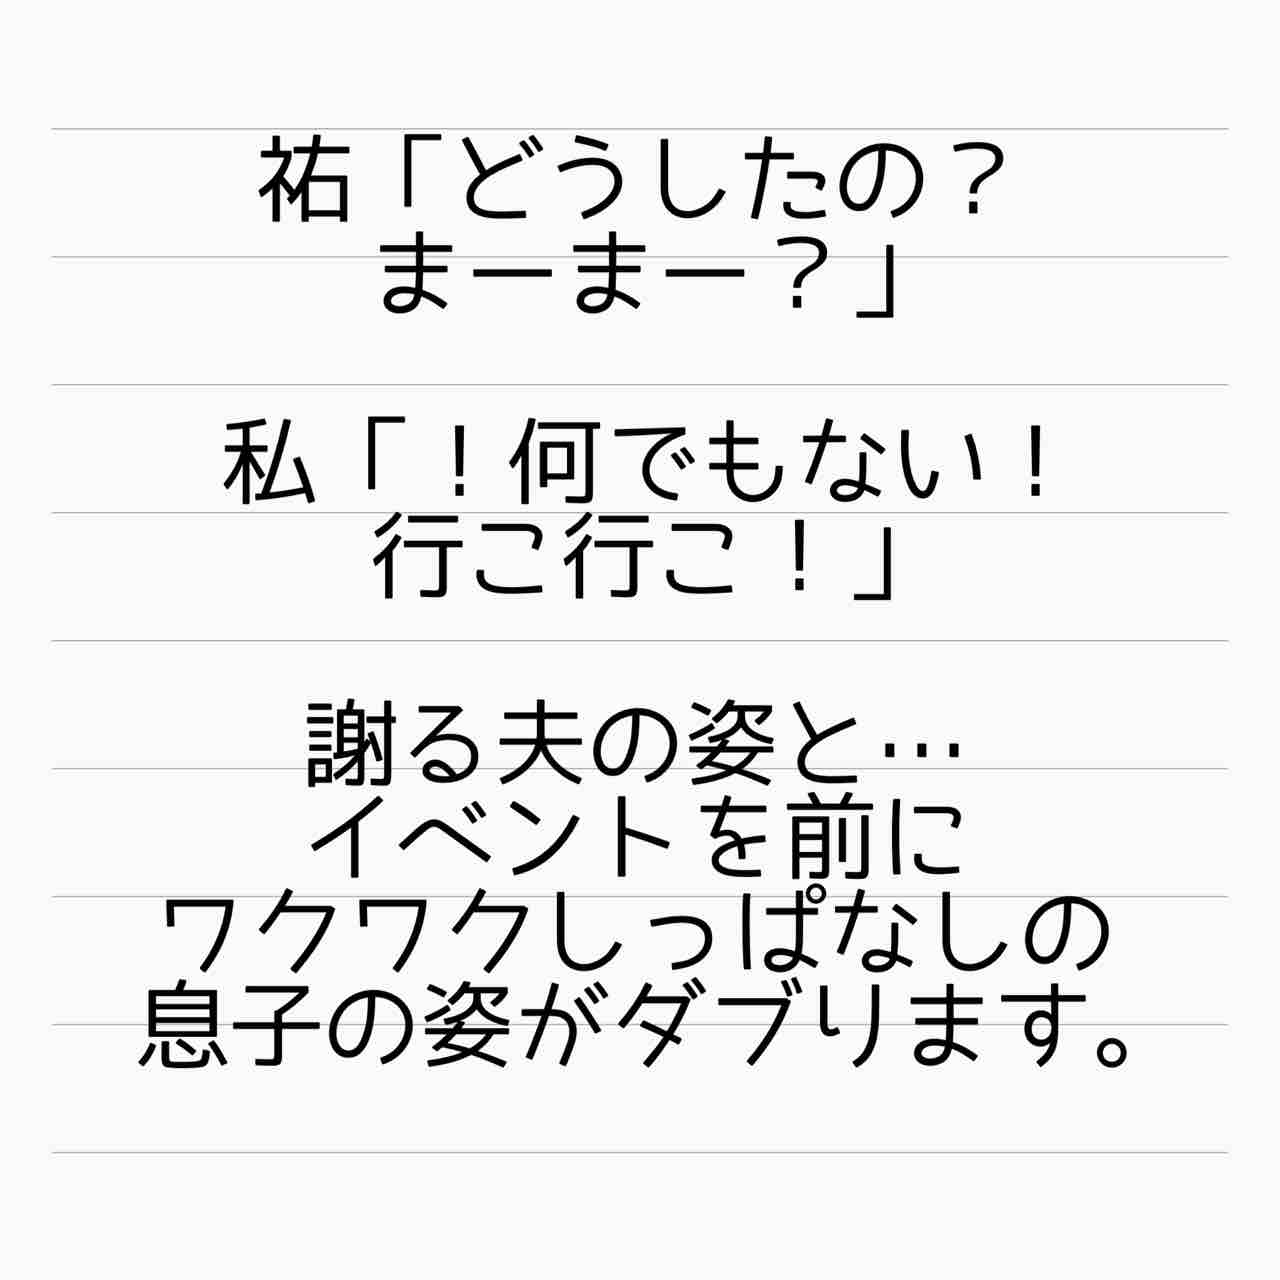 祐「どうしたの？
まーまー？」
私「！何でもない！
行こ行こ！」
謝る夫の姿と…
イベントを前に
ワクワクしっぱなしの
息子の姿がダブります。